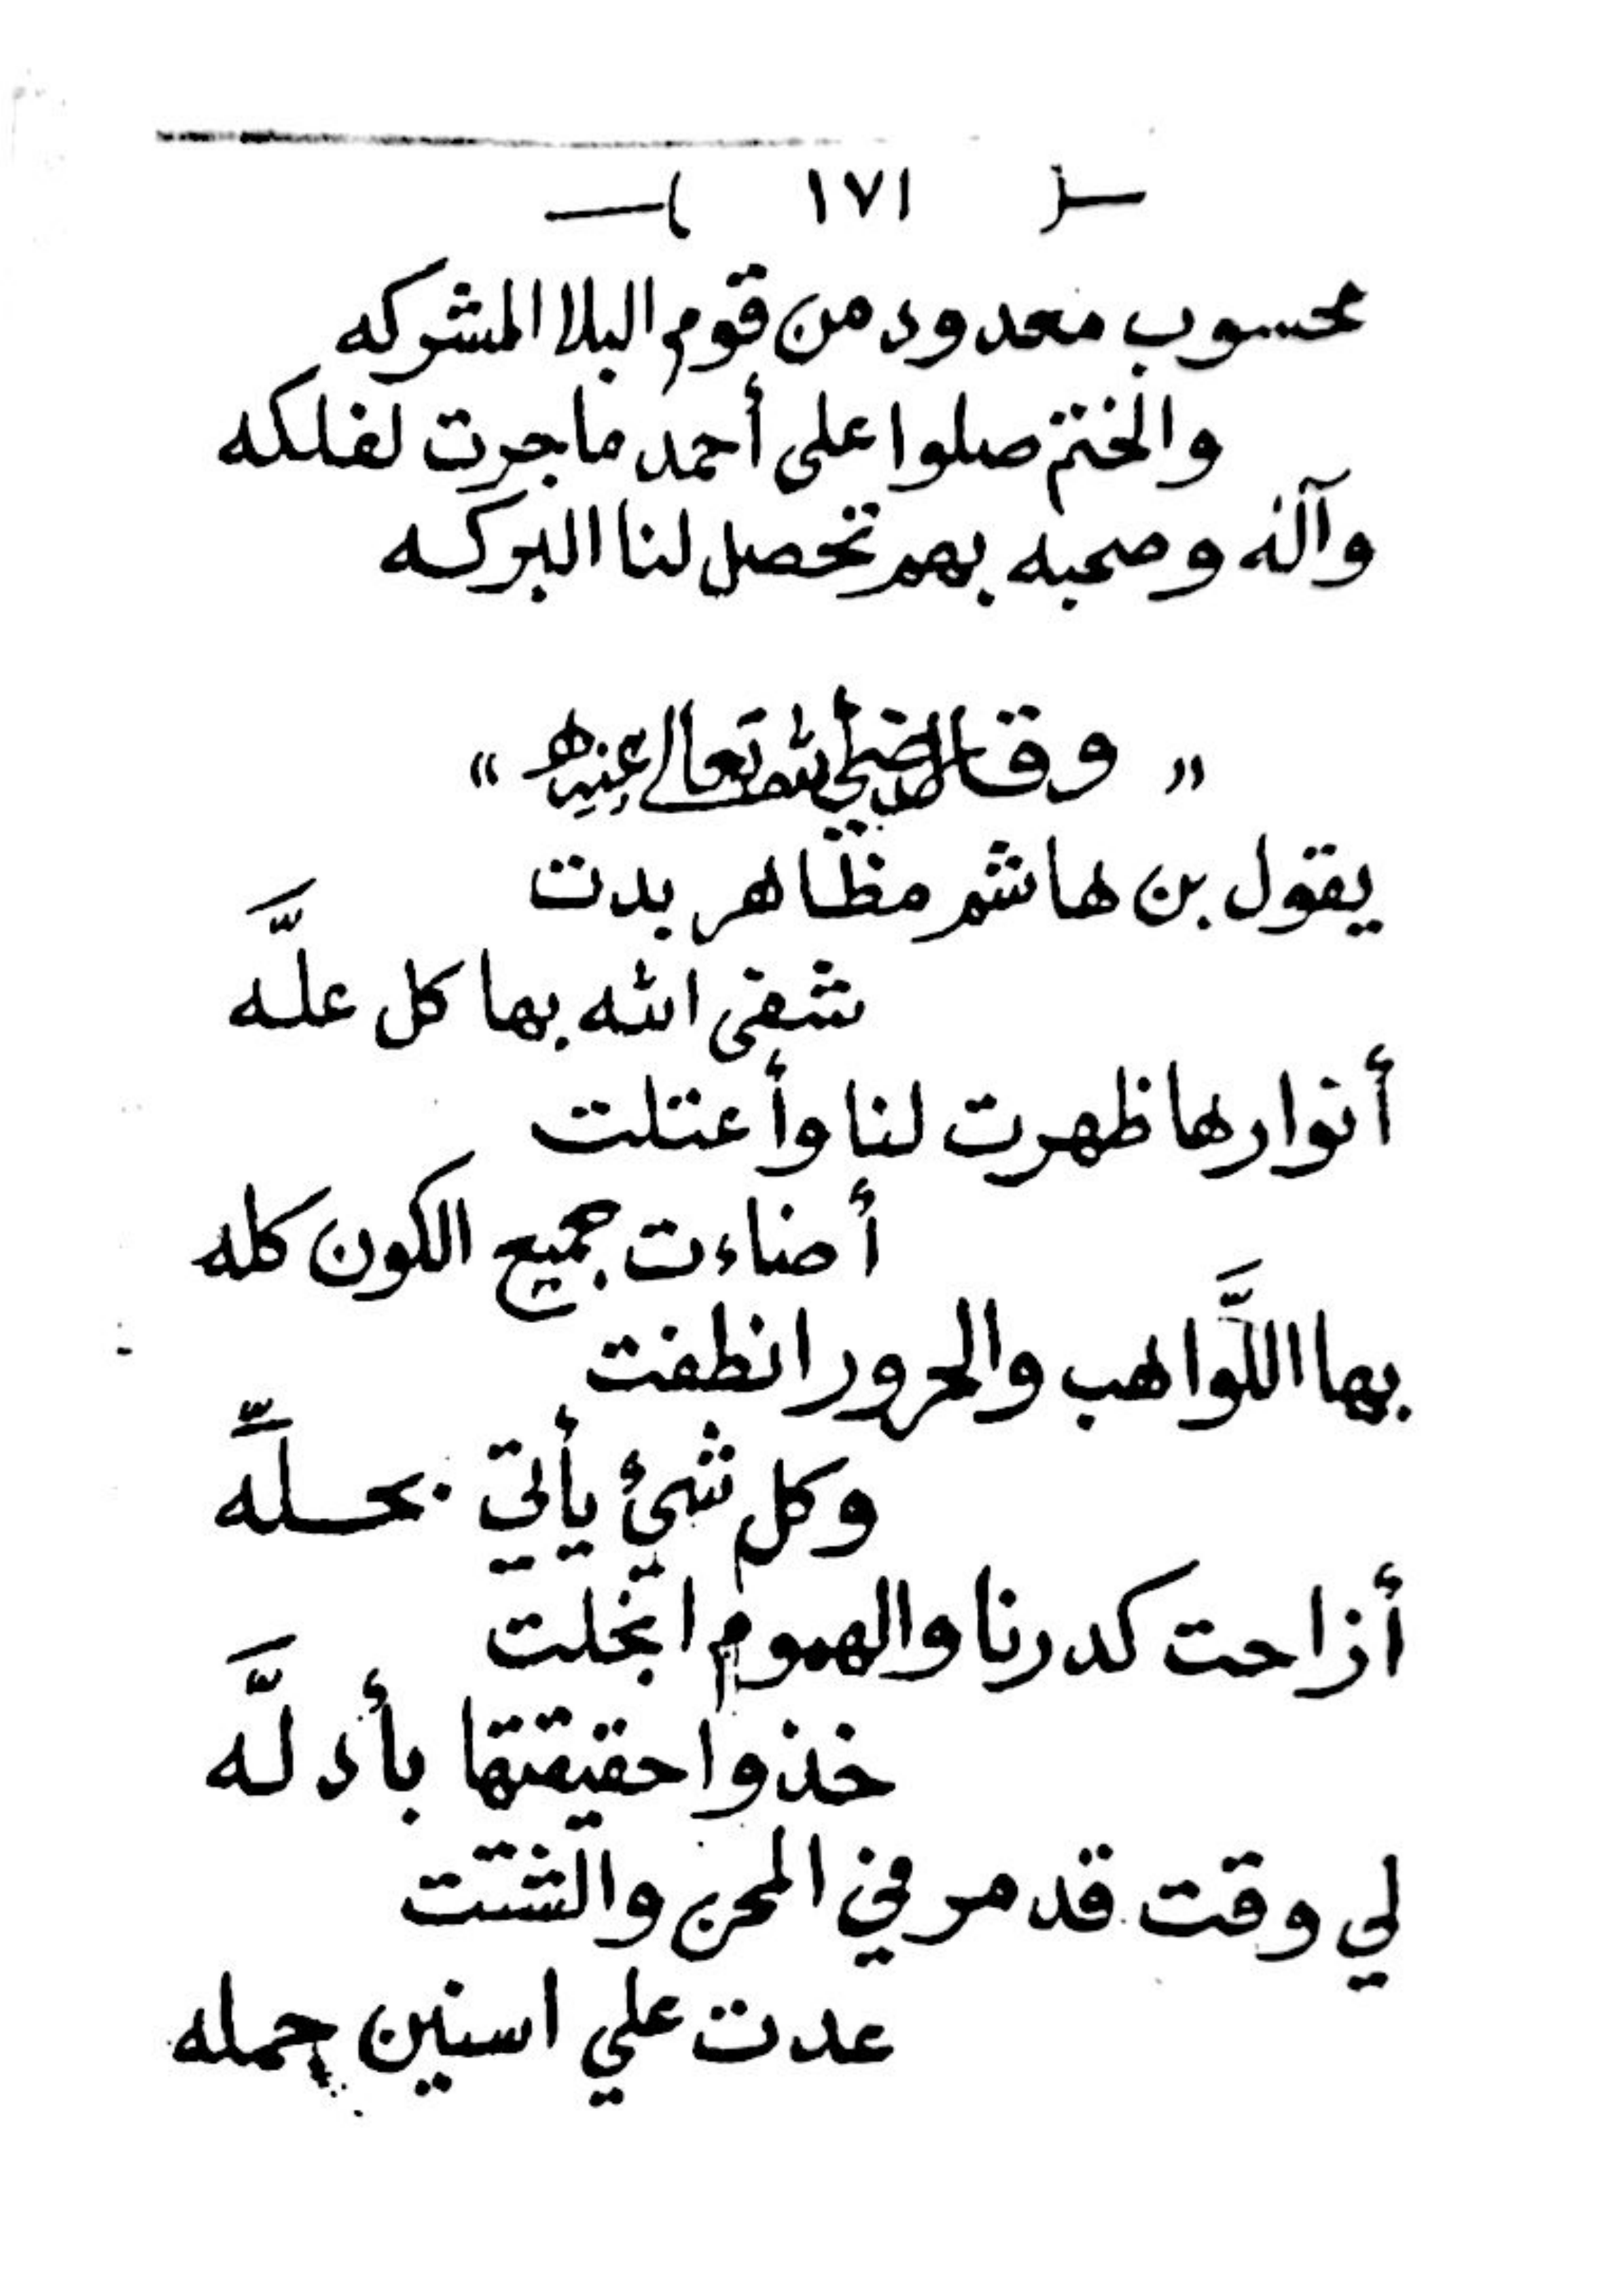 ( ١٧١ )
محسوب معدود من قوم البلا المشركه
والختم صلوا على أحمد ما جرت لفلكه
وآله وصحبه بهم تحصل لنا البركه
« وقال رضي الله تعالى عنه »
يقول بن هاشم مظاهر بدت
شفى الله بها كل علَّه
أنوارها ظهرت لنا وأعتلت
أضاءت جميع الكون كله
بها اللَّواهب والحرور انطفت
وكل شئ يأتي بحلَّه
أزاحت كدرنا والهموم انجلت
خذوا حقيقتها بأدلَّه
لي وقت قد مر في المحن والشتت
عدت علي اسنين جمله